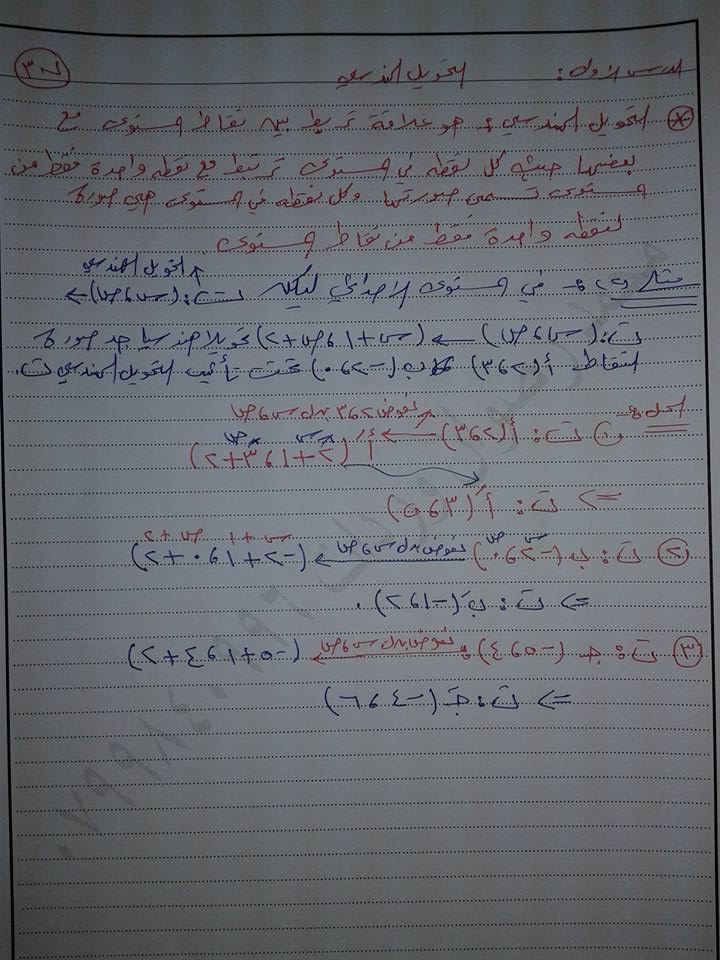 الدرس الأول: التحويل الهندسي ٣٠
* التحويل الهندسي: هو علاقة تربط بين نقاط المستوى مع
بعضها حيث كل نقطه في المستوى ترتبط مع نقطه واحدة فقط من
المستوى تسمى صورتها وكل نقطه في المستوى هي صورة
لنقطه واحدة فقط من نقاط المستوى.
التحويل الهندسي
مثال: في المستوى الإحداثي ليكن ت: (س، ص) ←
ت: (س، ص) ← (س+١، ص+٢) تحويلا هندسيا جد صورة
النقاط أ(٢، ٣) ب(-٢، ٠) تحت تأثير التحويل الهندسي ت.
نعوض ٢، ٣ بدل س، ص
الحل: ١) ت: أ(٢، ٣) ← أَ(٢+١، ٣+٢)
س ص
=> ت: أَ(٣، ٥)
س ص نعوض بدل س، ص س+١ ص+٢
٢) ت: ب(-٢، ٠) ← (-٢+١، ٠+٢)
=> ت: بَ(-١، ٢).
٣) ت: جـ(-٥، ٤) نعوض بدل س، ص ← (-٥+١، ٤+٢)
=> ت: جـَ(-٤، ٦)